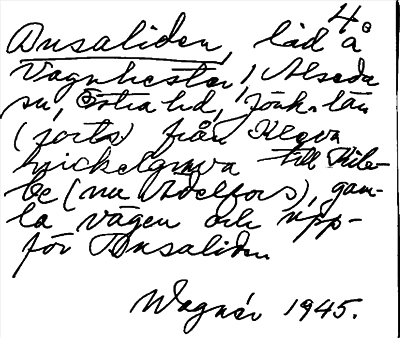 4.
Ansaliden, låd å
Vagnhester, Alseda
sn, Östra hd, Jönk. län
(forts) från Kleva
nickelgruva till Hile-
be (nu Ädelfors), gam-
la vägen och upp-
för Ansaliden
Wagnér 1945.